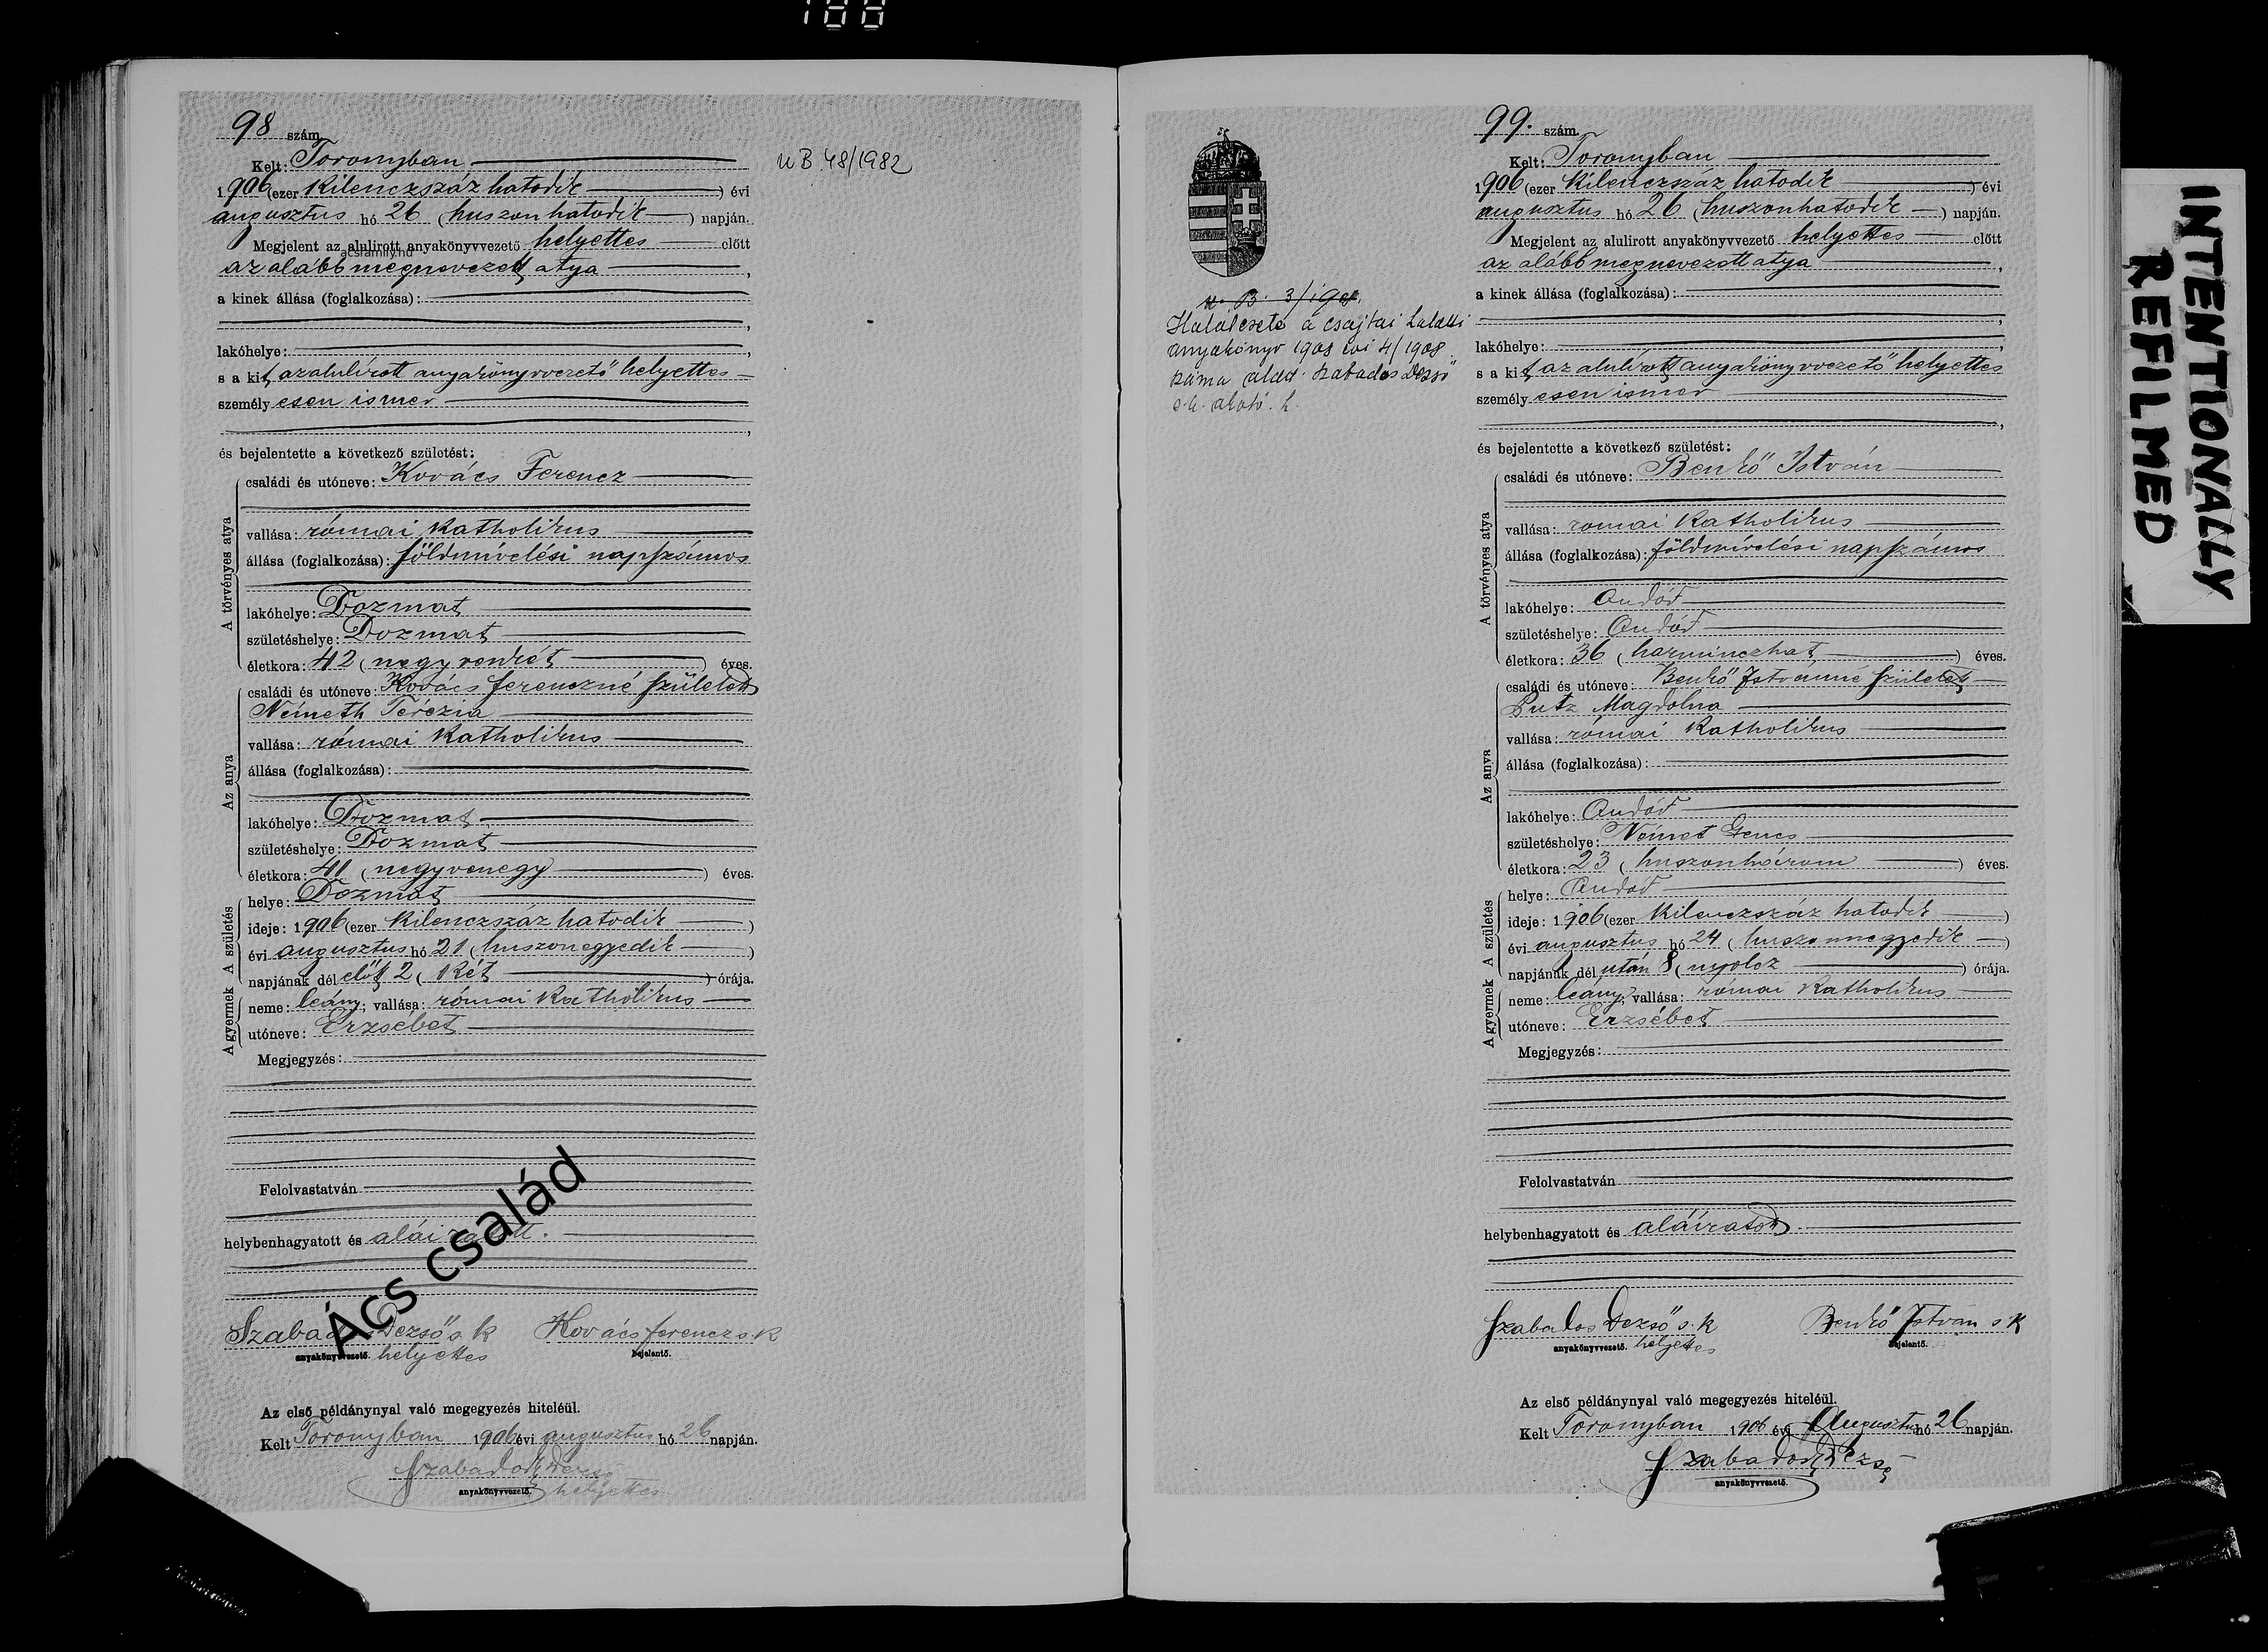 188
98 szám.
Kelt: Toronyban
1906 (ezer kilenczszáz hatodik) évi
augusztus hó 26 (huszonhatodik) napján.
Megjelent az alulirott anyakönyvvezető helyettes előtt
acsfamily.hu
az alább megnevezett atya,
a kinek állása (foglalkozása):
,
lakóhelye: ,
s a kit az alulírott anyakönyvvezető helyettes
személyesen ismer
,
és bejelentette a következő születést:
A törvényes atya
családi és utóneve: Kovács Ferencz
vallása: római katholikus
állása (foglalkozása): földmivelési napszámos
lakóhelye: Dozmat
születéshelye: Dozmat
életkora: 42 (negyvenkét) éves.
Az anya
családi és utóneve: Kovács Ferenczné született
Németh Terézia
vallása: római katholikus
állása (foglalkozása):
lakóhelye: Dozmat
születéshelye: Dozmat
életkora: 41 (negyvenegy) éves.
A születés
helye: Dozmat
ideje: 1906 (ezer kilenczszáz hatodik)
évi augusztus hó 21 (huszonegyedik)
napjának dél előtt 2 (két) órája.
A gyermek
neme: leány; vallása: római katholikus
utóneve: Erzsébet
Megjegyzés:
Felolvastatván
helybenhagyatott és aláiratott.
Ács család
Szabados Dezső s. k Kovács Ferencz s. k
anyakönyvvezető. helyettes bejelentő.
Az első példánynyal való megegyezés hiteléül.
Kelt Toronyban 1906 évi augusztus hó 26 napján.
Szabados Dezső
anyakönyvvezető. helyettes
U B. 48/1982
99. szám.
Kelt: Toronyban
1906 (ezer kilenczszáz hatodik) évi
augusztus hó 26 (huszonhatodik) napján.
Megjelent az alulirott anyakönyvvezető helyettes előtt
az alább megnevezett atya,
a kinek állása (foglalkozása):
,
lakóhelye: ,
s a kit az alulírott anyakönyvvezető helyettes
személyesen ismer
,
és bejelentette a következő születést:
A törvényes atya
családi és utóneve: Benkő István
vallása: romai katholikus
állása (foglalkozása): földmívelési napszámos
lakóhelye: Ondód
születéshelye: Ondód
életkora: 36 (harminczhat) éves.
Az anya
családi és utóneve: Benkő Istvánné született
Putz Magdolna
vallása: római katholikus
állása (foglalkozása):
lakóhelye: Ondód
születéshelye: Német Gencs
életkora: 23 (huszonhárom) éves.
A születés
helye: Ondod
ideje: 1906 (ezer kilenczszáz hatodik)
évi augusztus hó 24 (huszonnegyedik)
napjának dél után 8 (nyolcz) órája.
A gyermek
neme: leány; vallása: római katholikus
utóneve: Erzsébet
Megjegyzés:
Felolvastatván
helybenhagyatott és aláiratott.
Szabados Dezső s. k Benkő István s k
anyakönyvvezető. helyettes bejelentő.
Az első példánynyal való megegyezés hiteléül.
Kelt Toronyban 1906 évi Augusztus hó 26 napján.
Szabados Dezső
anyakönyvvezető.
B. 3/
Halálesete a csajtai halotti
anyakönyv 1908 évi 4/1908
száma alatt. Szabados Dezső
INTENTIONALLY
REFILMED